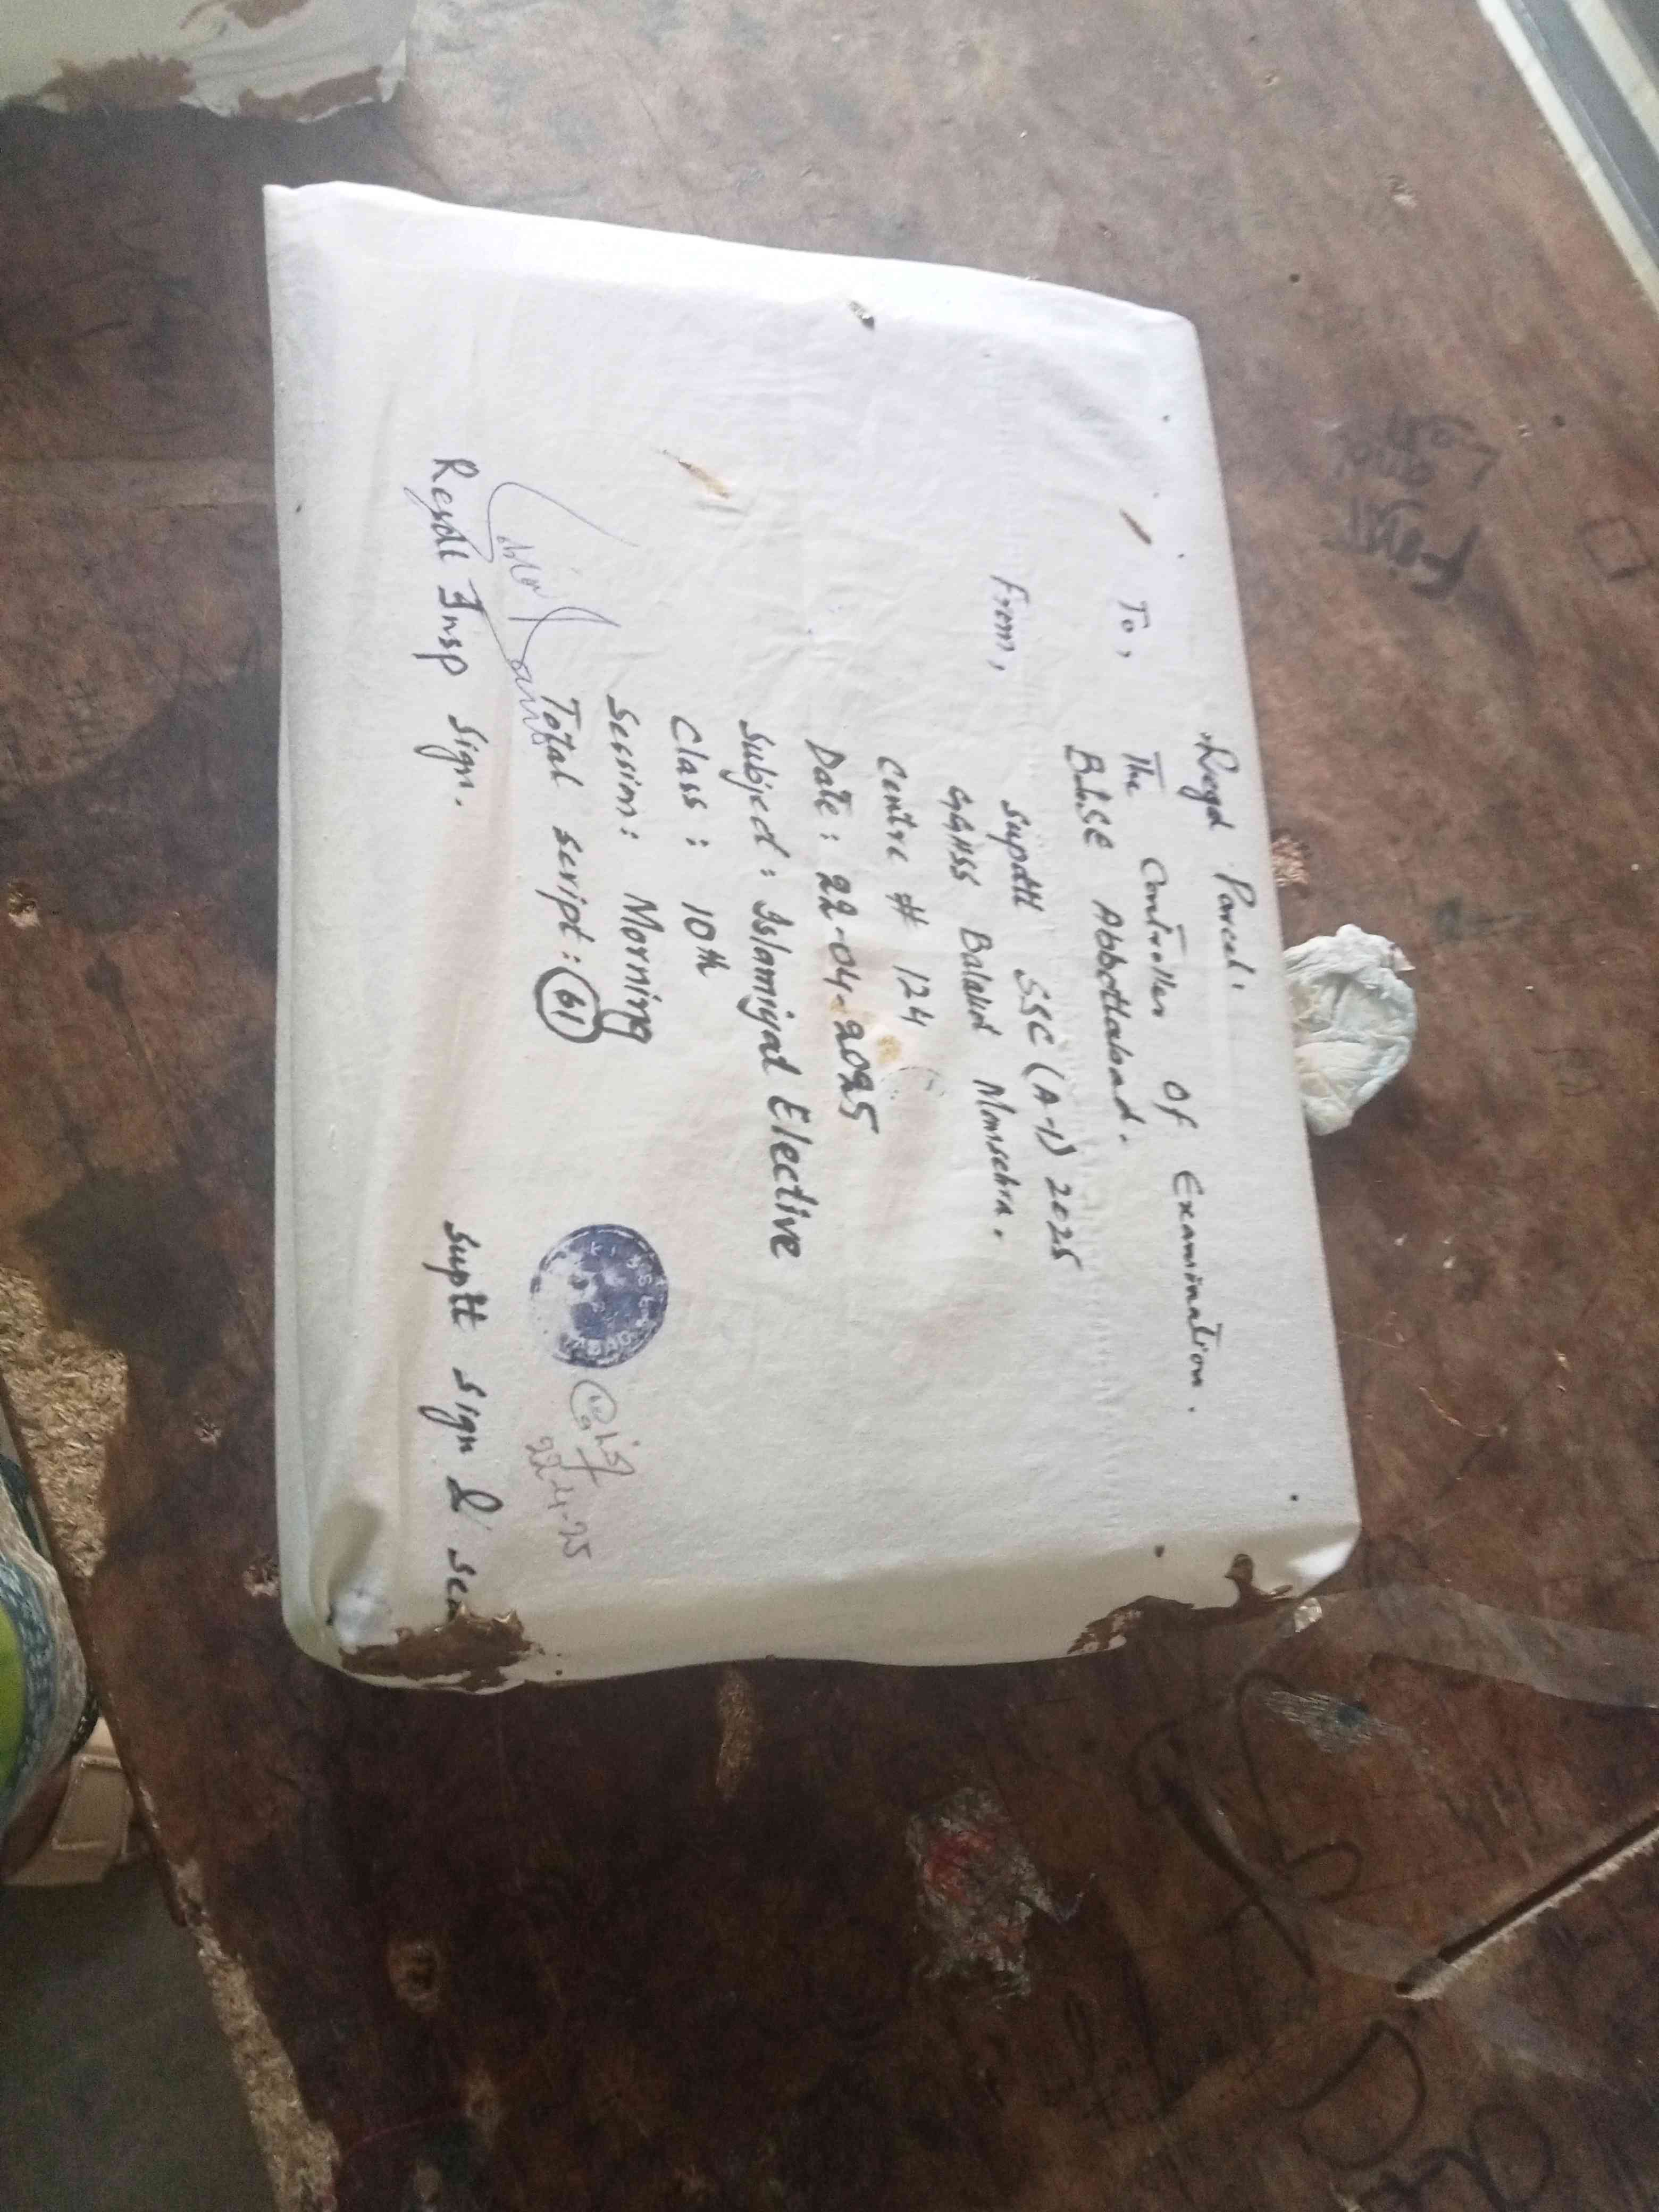 Regd Parcel.
To,
The Controller Of Examination.
B.I.SE Abbottabad.
From,
Supdtt SSC (A-I) 2025
GGHSS Balakot Mansehra.
Centre # 124
Date: 22-04-2025
Subject: Islamiyat Elective
Class: 10th
Session: Morning
Total script: 61
22-4-25
Resdt Insp Sign.
Suptt Sign &